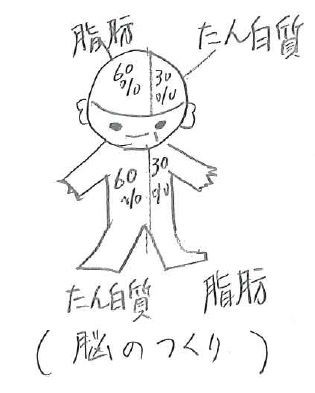 脂肪 たん白質
60% 30%
60% 30%
たん白質 脂肪
(脳のつくり)